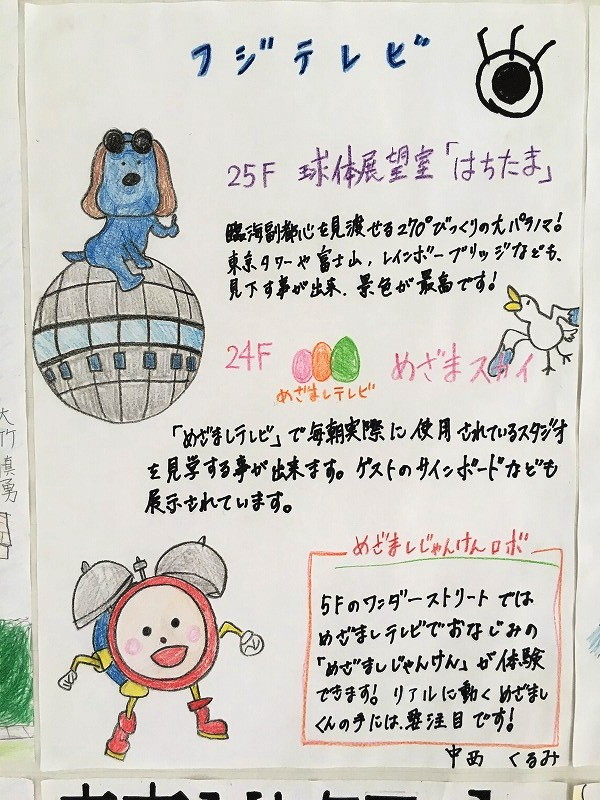 フジテレビ
25F 球体展望室「はちたま」
臨海副都心を見渡せる270°びっくりの大パノラマ!
東京タワーや富士山,レインボーブリッジなども、
見下す事が出来、景色が最高です!
24F めざましテレビ めざまスカイ
「めざましテレビ」で毎朝実際に使用されているスタジオ
を見学する事が出来ます。ゲストのサインボードなども
展示されています。
めざましじゃんけんロボ
5Fのワンダーストリートでは
めざましテレビでおなじみの
「めざましじゃんけん」が体験
できます!リアルに動くめざまし
くんの手には、要注目です!
中西 くるみ
大竹慎勇